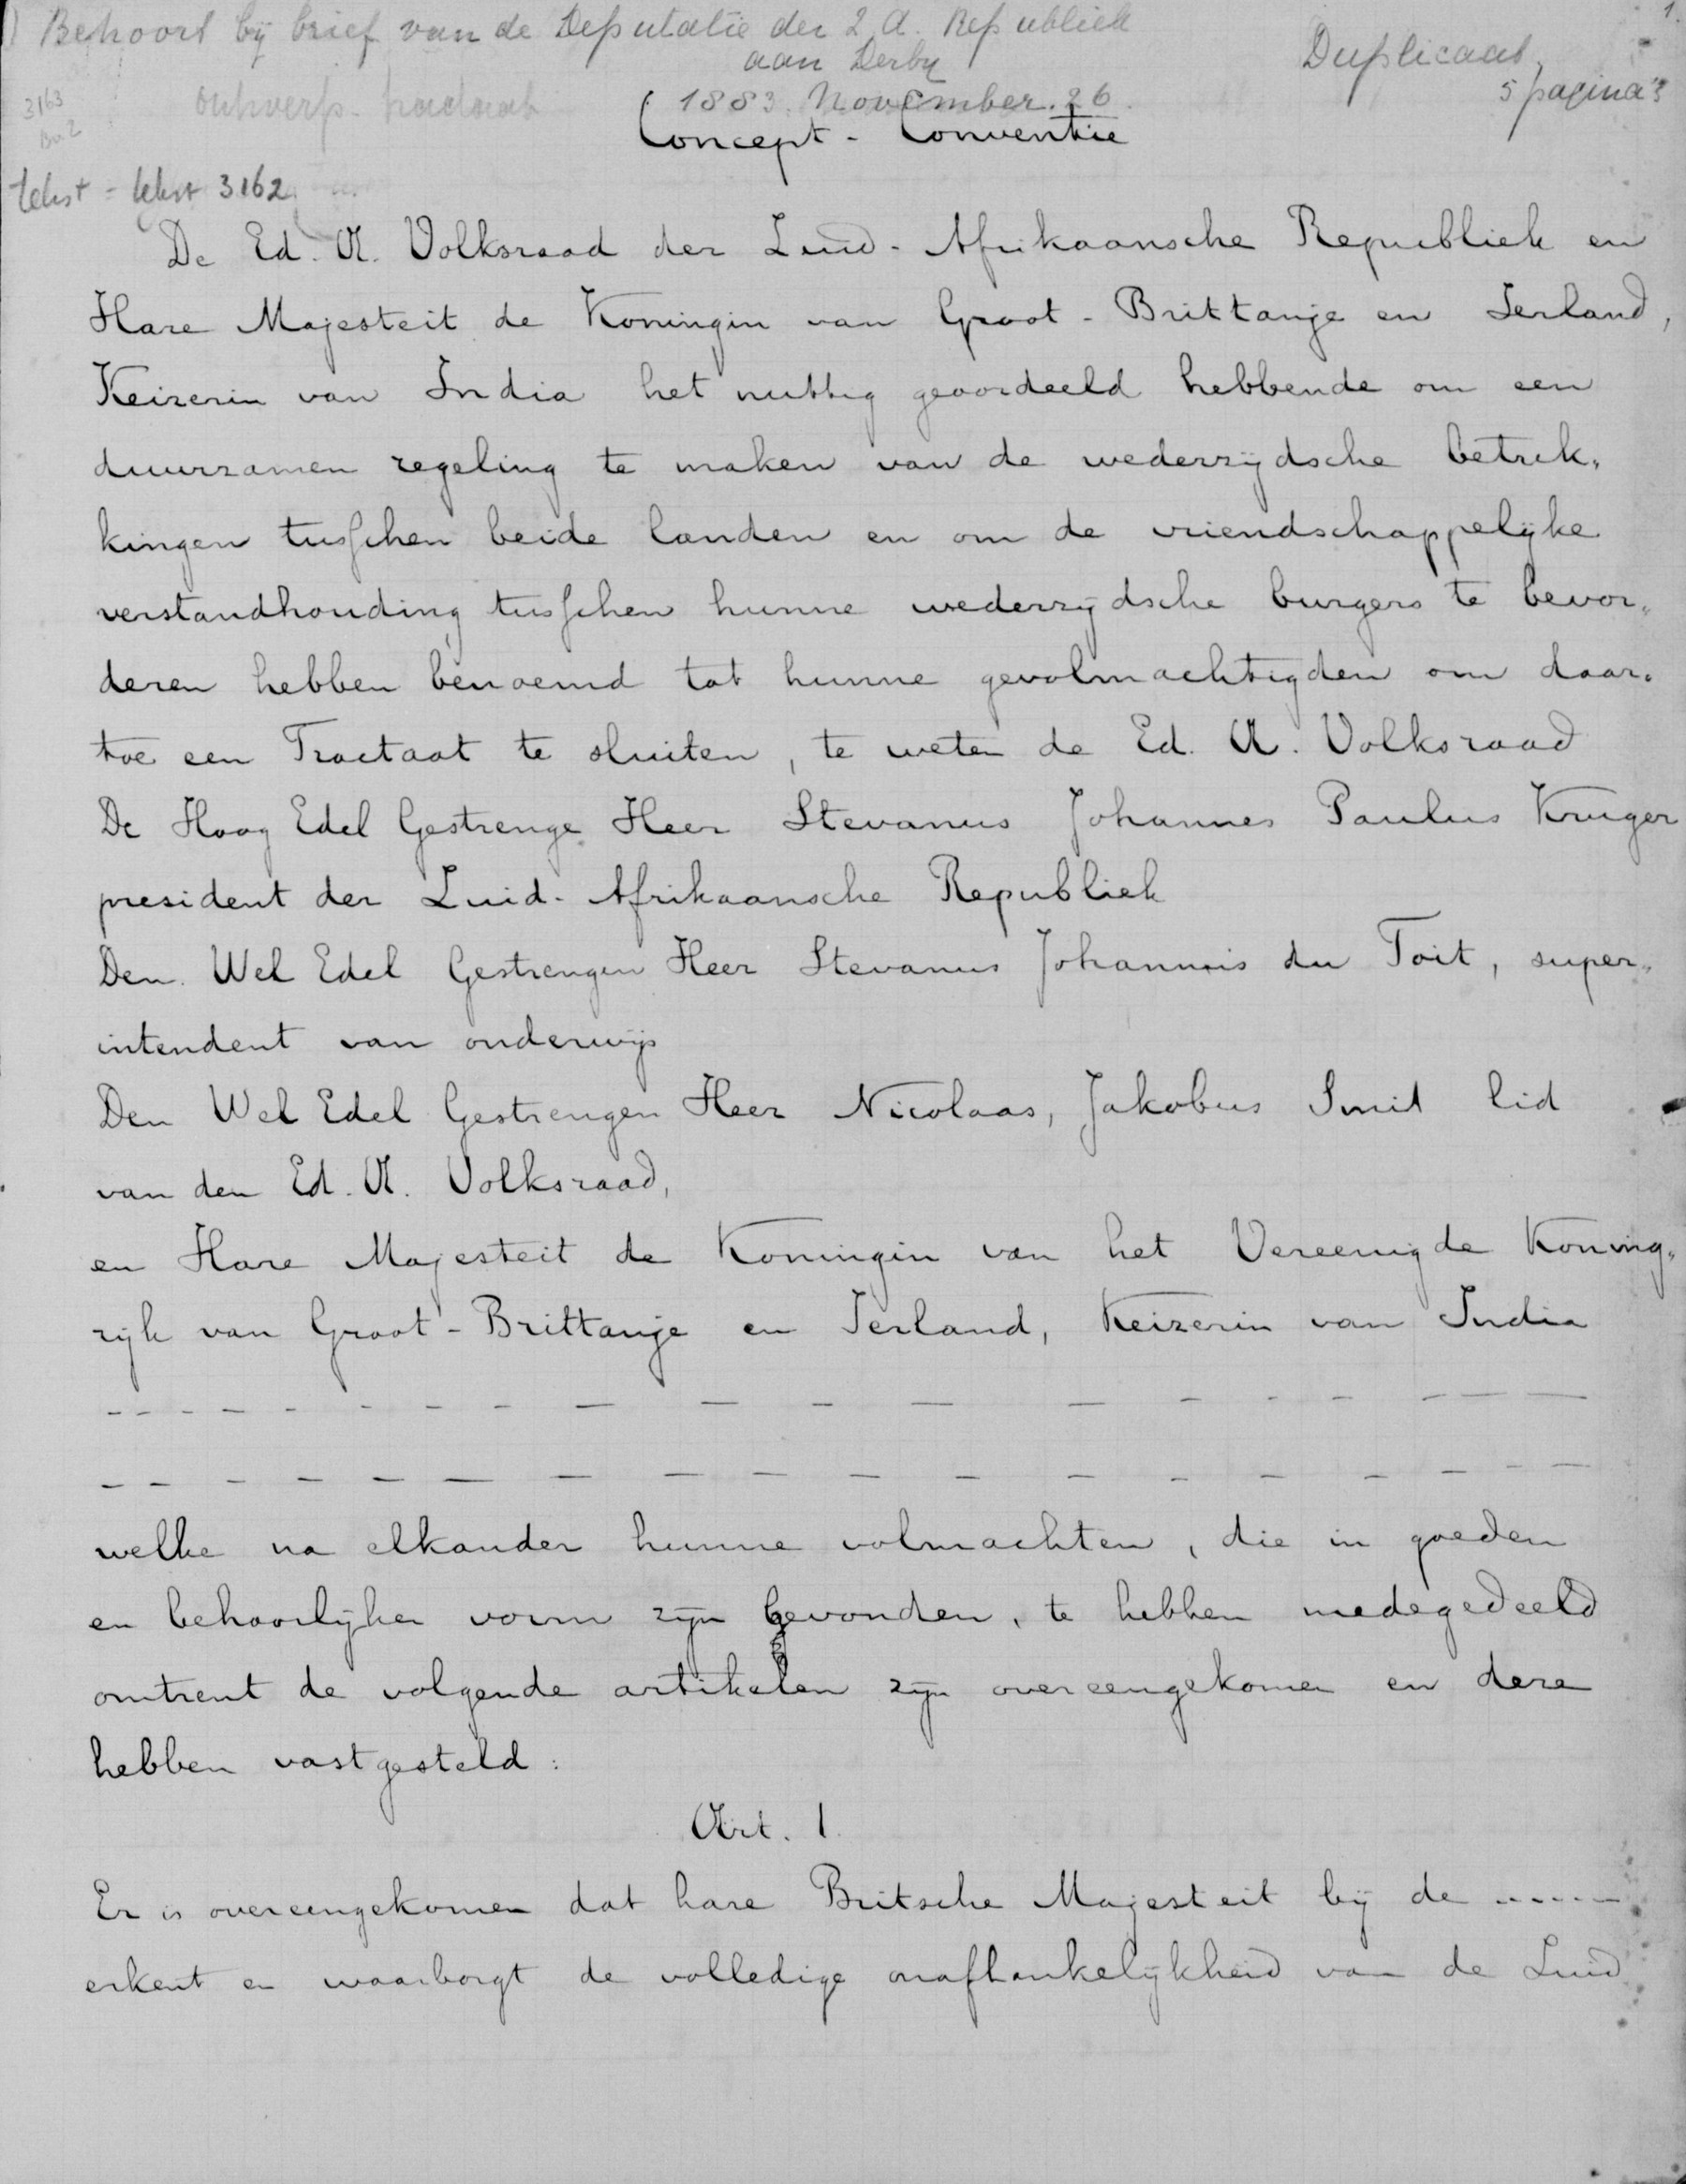 Behoort bij brief van de Deputatie der Z. A. Republiek
aan Derby
1883. November. 26.
Duplicaat
5 pagina's
1.
3163
Ontwerp-tractaat
Concept-Conventie
tekst = tekst 3162
De Ed. A. Volksraad der Zuid-Afrikaansche Republiek en
Hare Majesteit de Koningin van Groot-Brittanje en Ierland,
Keizerin van India het nuttig geoordeeld hebbende om een
duurzamen regeling te maken van de wederzijdsche betrek„
kingen tusschen beide landen en om de vriendschappelijke
verstandhouding tusschen hunne wederzijdsche burgers te bevor„
deren hebben benoemd tot hunne gevolmachtigden om daar„
toe een Tractaat te sluiten, te weten de Ed. A. Volksraad
De Hoog Edel Gestrenge Heer Stevanus Johannes Paulus Kruger
president der Zuid-Afrikaansche Republiek
Den Wel Edel Gestrengen Heer Stevanus Johannis du Toit, super„
intendent van onderwijs
Den Wel Edel Gestrengen Heer Nicolaas, Jakobus Smit lid
van den Ed. A. Volksraad,
en Hare Majesteit de Koningin van het Vereenigde Koning„
rijk van Groot-Brittanje en Ierland, Keizerin van India
welke na elkander hunne volmachten, die in goeden
en behoorlijken vorm zijn gevonden, te hebben medegedeeld
omtrent de volgende artikelen zijn overeengekomen en deze
hebben vastgesteld:
Art. 1.
Er is overeengekomen dat hare Britsche Majesteit bij de ......
erkent en waarborgt de volledige onafhankelijkheid van de Zuid